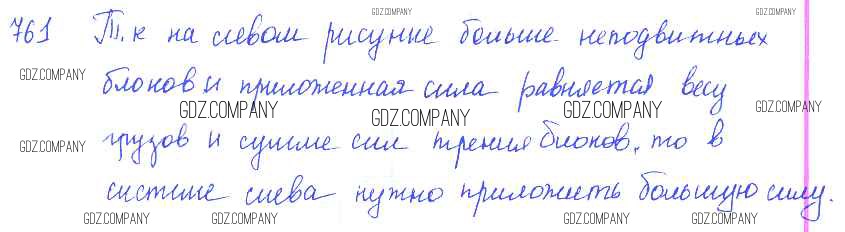 GDZ.COMPANY GDZ.COMPANY
761 Т.к на левом рисунке больше неподвижных
GDZ.COMPANY
блоков и приложенная сила равняется весу
GDZ.COMPANY GDZ.COMPANY GDZ.COMPANY GDZ.COMPANY
GDZ.COMPANY грузов и сумме сил трения блоков, то в
системе слева нужно приложить большую силу.
GDZ.COMPANY GDZ.COMPANY GDZ.COMPANY GDZ.COMPANY